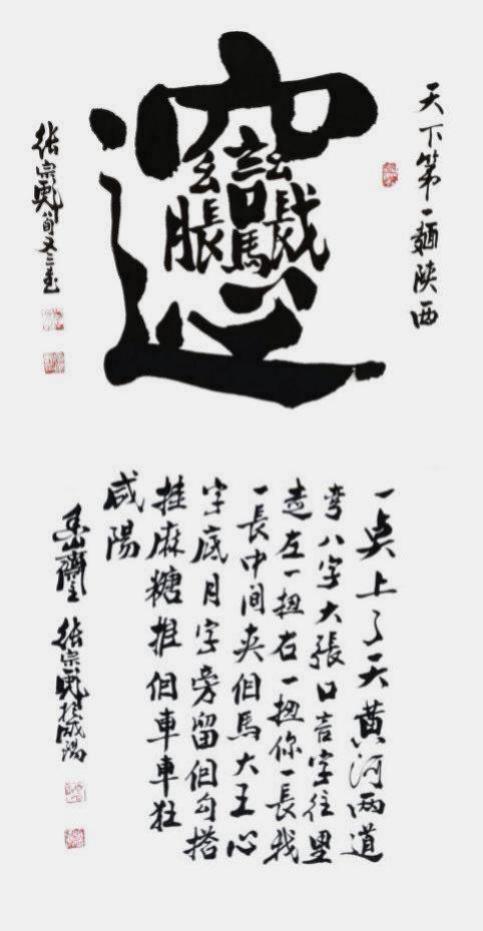 天下第一麵陝西
𰻞
一点上了天黄河两道
弯八字大張口言字往里
走左一扭右一扭你一長我
一長中间夹個馬大王心
字底月字旁留個勾搭
挂麻糖推個車車狂
咸陽